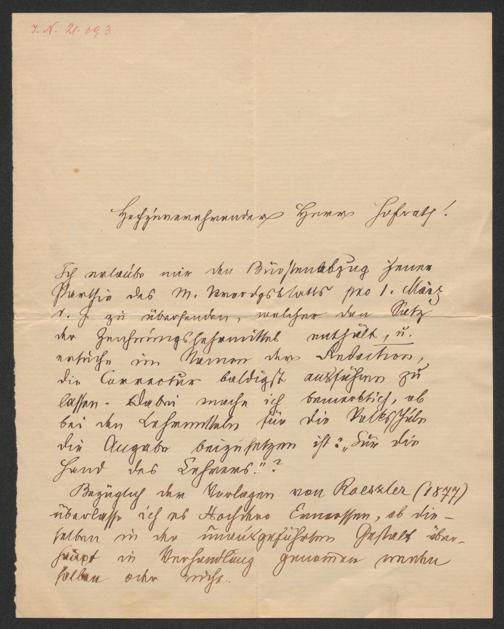 I. N. 21.093
Hochzuverehrender Herr Hofrath!
Ich erlaube mir den Bürstenabzug jener
Parthie des M. Verordgsblatts pro 1. März
l. J. zu übersenden, welcher den Satz
der Zeichnungslehrmittel enthält, u.
ersuche im Namen der Redaction,
die Correctur baldigst ausführen zu
lassen. Dabei mache ich bemerklich, ob
bei den Lehrmitteln für die Volksschule
die Angabe beizusetzen ist: „Für die
Hand des Lehrers."?
Bezüglich der Vorlagen von Roeszler (1877)
überlasse ich es Hochdero Ermessen, ob die-
selben in der unausgeführten Gestalt über-
haupt in Verhandlung genommen werden
sollen oder nicht.